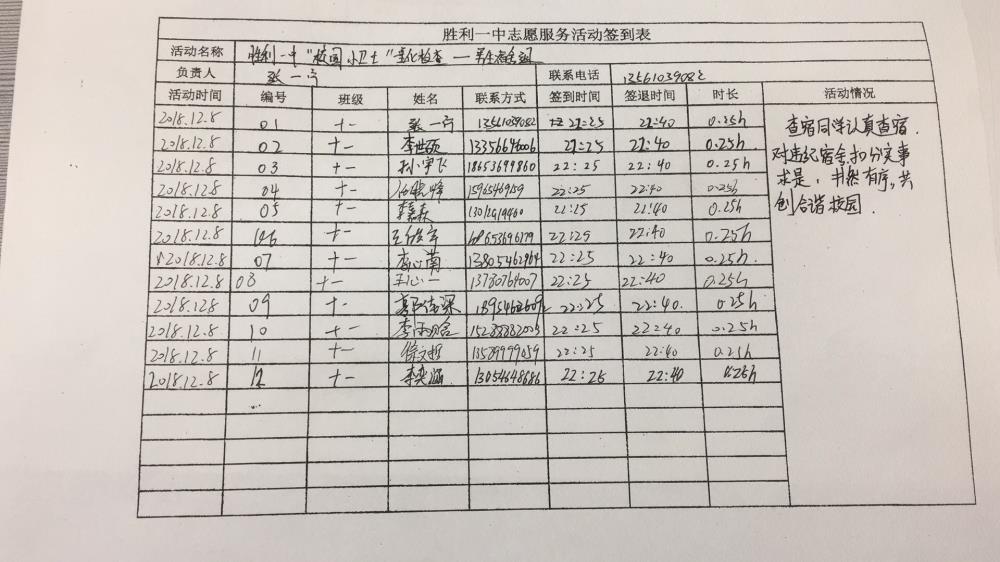 胜利一中志愿服务活动签到表
活动名称 胜利一中"校园小卫士"量化检查—学生宿舍组
负责人 张一宁 联系电话 13561039082
活动时间 编号 班级 姓名 联系方式 签到时间 签退时间 时长 活动情况
2018.12.8 01 十一 张一宁 13561039082 22:25 22:40 0.25h
2018.12.8 02 十一 22:25 22:40 0.25h
2018.12.8 03 十一 孙宇飞 18653699860 22:25 22:40 0.25h
2018.12.8 04 十一 22:25 22:40 0.25h
2018.12.8 05 十一 22:25 22:40 0.25h
2018.12.8 06 十一 22:25 22:40 0.25h
2018.12.8 07 十一 李心菊 13805462964 22:25 22:40 0.25h
2018.12.8 08 十一 王心一 13780764007 22:25 22:40 0.25h
2018.12.8 09 十一 22:25 22:40. 0.25h
2018.12.8 10 十一 22:25 22:40 0.25h
2018.12.8 11 十一 徐文哲 13589999059 22:25 22:40 0.25h
2018.12.8 12 十一 李奕涵 13054648686 22:25 22:40 0.25h
...
查宿同学认真查宿.
对违纪宿舍扣分实事
求是,井然有序,共
创合谐校园.